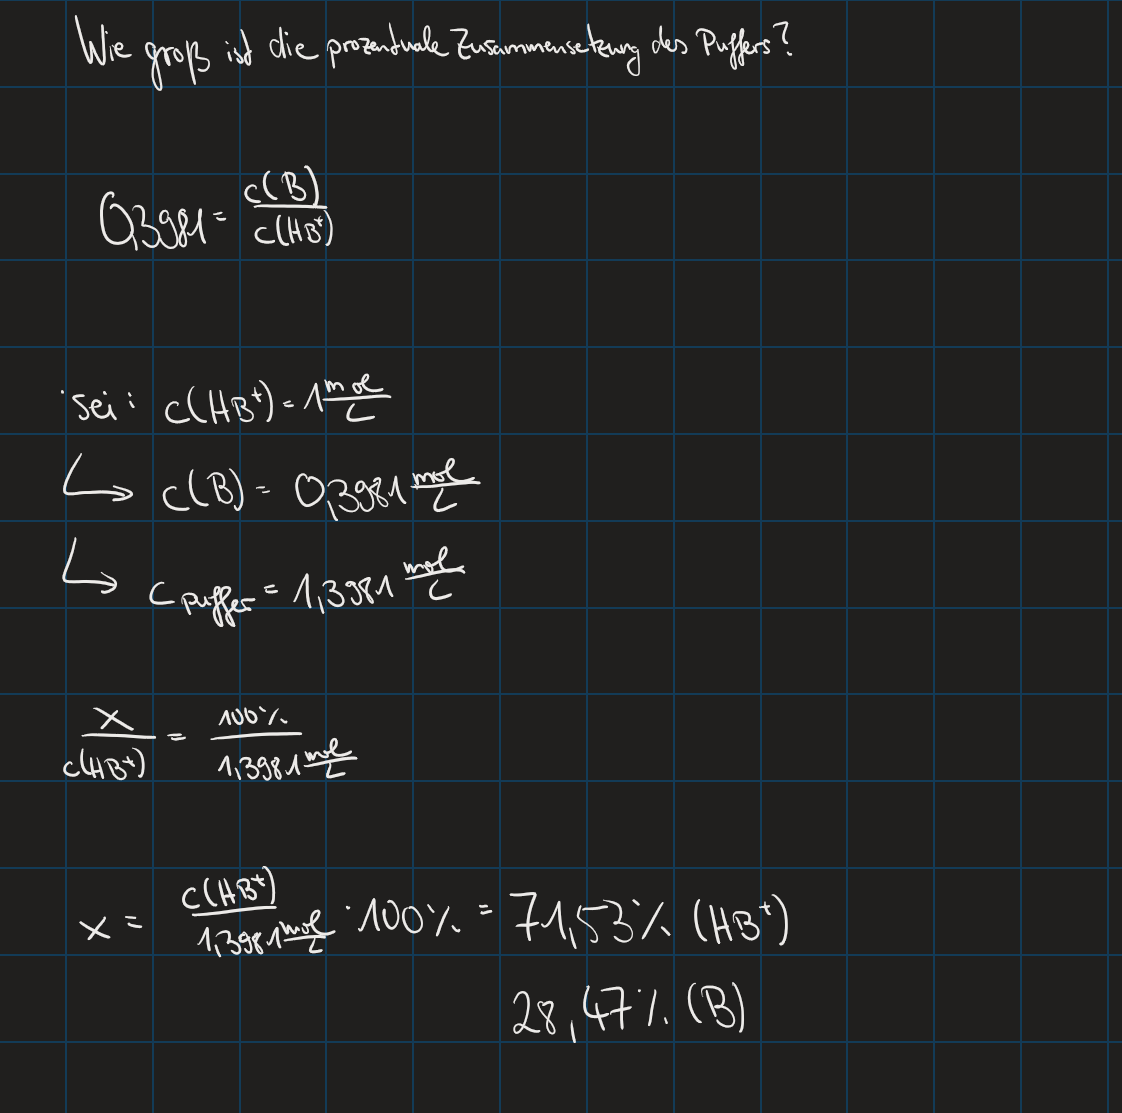 Wie groß ist die prozentuale Zusammensetzung des Puffers?
0,3981 = c(B) / c(HB⁺)
sei: c(HB⁺) = 1 mol/L
↳ c(B) = 0,3981 mol/L
↳ c puffer = 1,3981 mol/L
x / c(HB⁺) = 100% / 1,3981 mol/L
x = c(HB⁺) / 1,3981 mol/L · 100% = 71,53% (HB⁺)
28,47% (B)